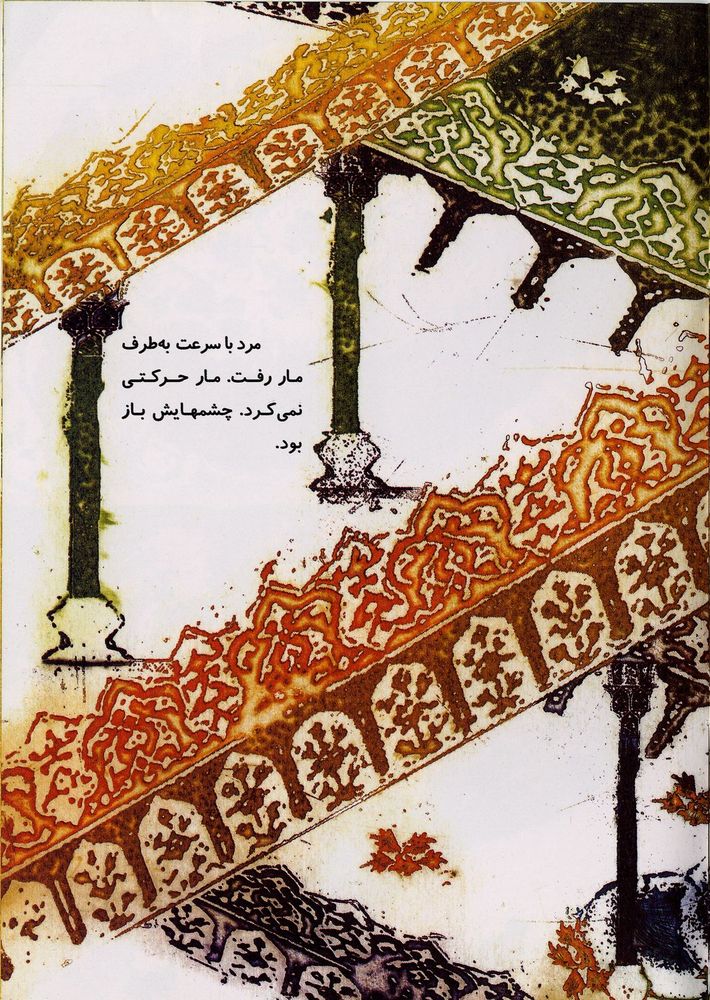 مرد با سرعت به‌طرف
مار رفت. مار حرکتی
نمی‌کرد. چشمهایش باز
بود.